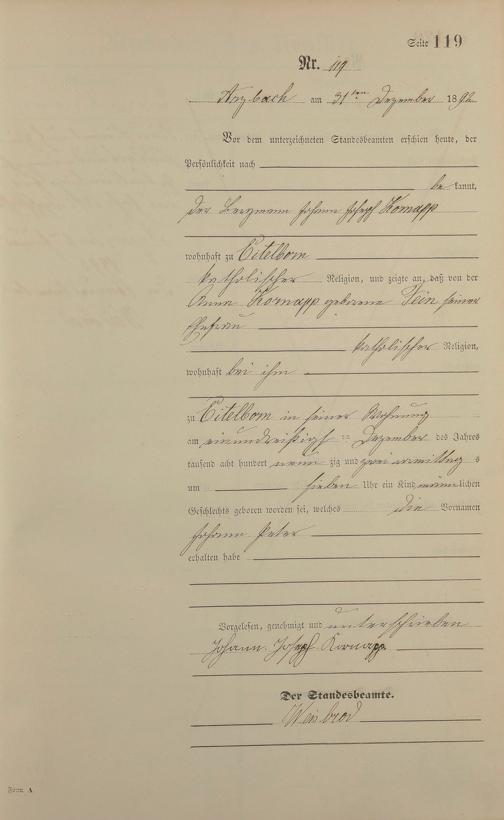 Seite 119
Nr. 119
Arzbach am 31ten Dezember 1892
Vor dem unterzeichneten Standesbeamten erschien heute, der
Persönlichkeit nach
be kannt,
der Bergmann Johann Joseph Kornapp
wohnhaft zu Eitelborn
katholischer Religion, und zeigte an, daß von der
Anna Kornapp geborene seiner
Ehefrau
katholischer Religion,
wohnhaft bei ihm
zu Eitelborn in seiner Wohnung
am einunddreißigsten Dezember des Jahres
tausend acht hundert neun zig und zwei vormittag s
um sieben Uhr ein Kind männlichen
Geschlechts geboren worden sei, welches die Vornamen
Johann Peter
erhalten habe
Vorgelesen, genehmigt und unterschrieben
Johann Joseph Kornapp
Der Standesbeamte.
Weisbrod
Form A